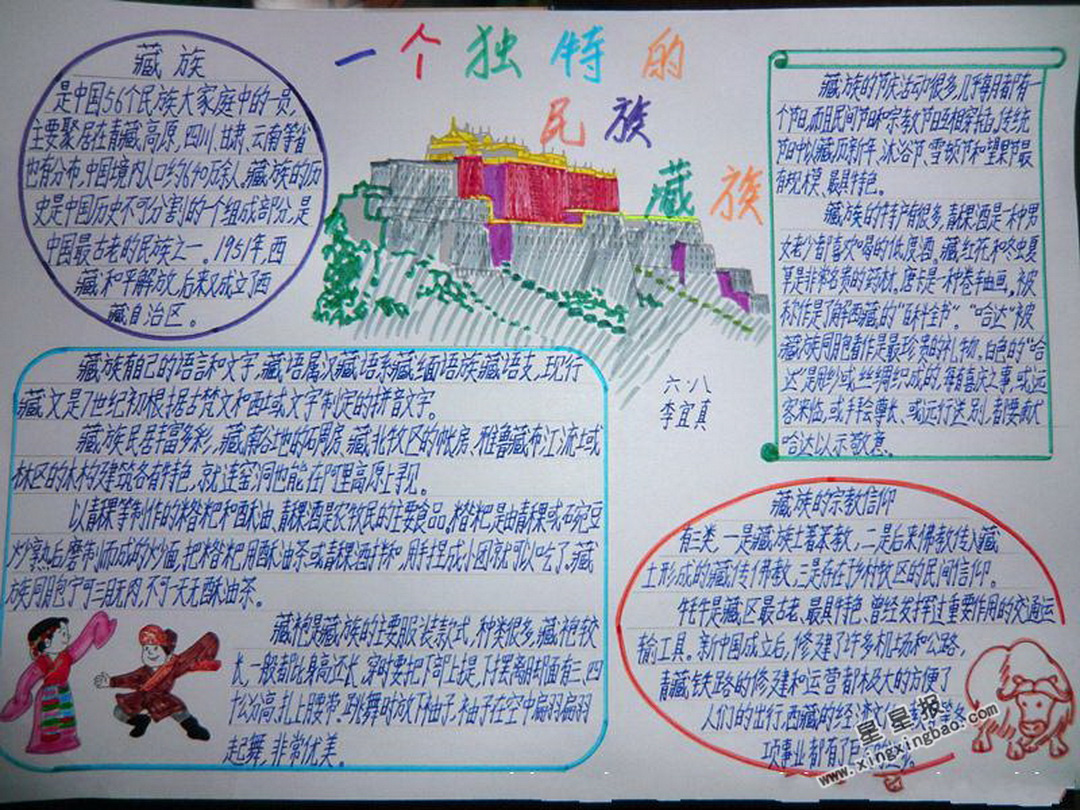 一个独特的
民族
藏族
藏族
是中国56个民族大家庭中的一员,
主要聚居在青藏高原,四川、甘肃、云南等省
也有分布,中国境内人口约640万余人。藏族的历
史是中国历史不可分割的一个组成部分,是
中国最古老的民族之一。1951年,西
藏和平解放,后来又成立了西
藏自治区。
藏族的节庆活动很多,几乎每月都有一
个节日,而且民间节日和宗教节日互相穿插。传统
节日中以藏历新年、沐浴节、雪顿节和望果节最
有规模、最具特色。
藏族的特产有很多,青稞酒是一种男
女老少都喜欢喝的低度酒。藏红花和冬虫夏
草是非常名贵的药材。唐卡是一种卷轴画,被
称作是了解西藏的“百科全书”。“哈达”被
藏族同胞看作是最珍贵的礼物。白色的“哈
达”是用纱或丝绸织成的,每有喜庆之事,或远
客来临,或拜会尊长、或远行送别,者都要献
哈达以示敬意。
六·八
李宜真
藏族有自己的语言和文字,藏语属汉藏语系藏缅语族藏语支,现行
藏文是7世纪初根据古梵文和西域文字制定的拼音文字。
藏族民居丰富多彩,藏南谷地的石碉房、藏北牧区的帐房、雅鲁藏布江流域
林区的木构建筑各有特色,就连窑洞也能在阿里高原上寻见。
以青稞等制作的糌粑和酥油、青稞酒是农牧民的主要食品。糌粑是由青稞或豌豆
炒熟后磨制而成的炒面,把糌粑用酥油茶或青稞酒拌和,用手捏成小团就可以吃了。藏
族同胞宁可三月无肉,不可一天无酥油茶。
藏袍是藏族的主要服装款式,种类很多,藏袍较
长,一般都比身高还长,穿时要把下部上提,下摆离脚面有三、四
十公分高,扎上腰带。跳舞时放下袖子,袖子在空中翩翩
起舞,非常优美。
藏族的宗教信仰
有三类,一是藏族土著苯教,二是后来佛教传入藏
土形成的藏传佛教,三是存在于乡村牧区的民间信仰。
牦牛是藏区最古老、最具特色、曾经发挥过重要作用的交通运
输工具。新中国成立后,修建了许多机场和公路,
青藏铁路的修建和运营都极大的方便了
人们的出行。西藏的经济文化
项事业都有了
星星报
www.xingxingbao.com